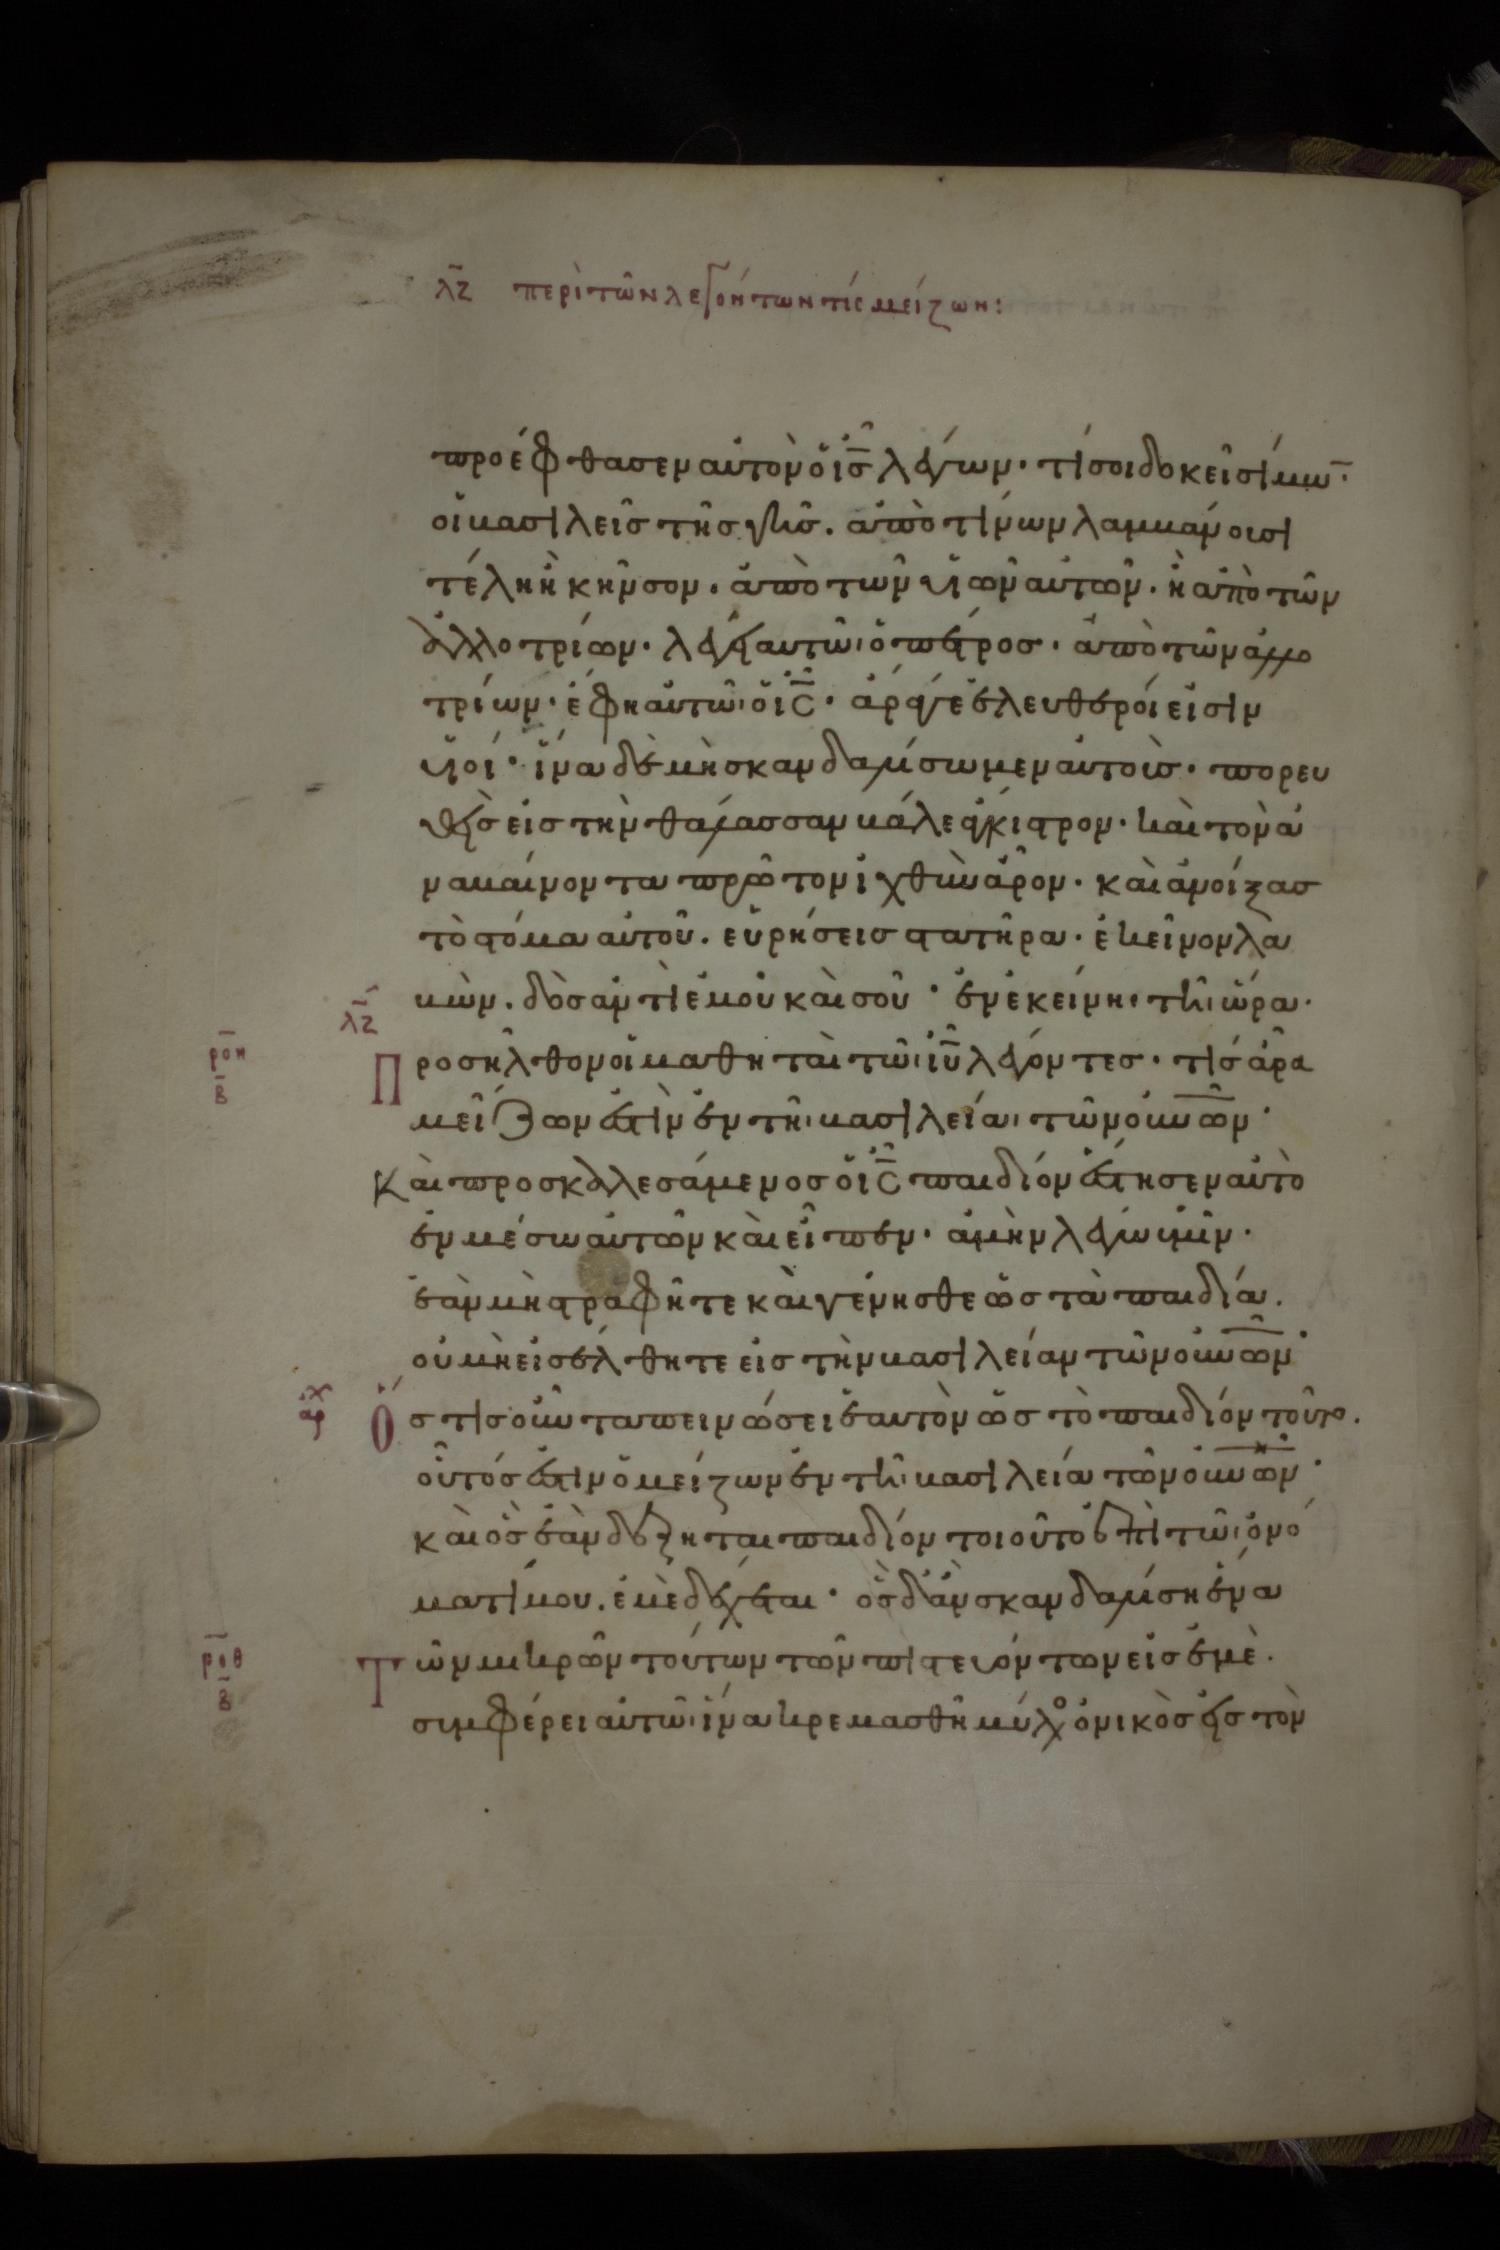 λζ περὶ τῶν λεγόντων τίς μείζων:
προέφθασεν αὐτὸν ὁ ις λέγων· τί σοι δοκεῖ σίμων·
οἱ βασιλεῖς τῆς γῆς. ἀπὸ τίνων λαμβάνουσι
τέλη ἢ κῆνσον. ἀπὸ τῶν υἱῶν αὐτῶν. ἢ ἀπὸ τῶν
ἀλλοτρίων. λέγει αυτῶ ὁ πέτρος. ἀπὸ τῶν ἀλλο
τρίων· ἔφη αὐτῶ ὁ ις. ἄρα γε ἐλευθεροί εἰσιν
υἱοί· ἵνα δὲ μὴ σκανδαλίσωμεν αὐτοὺς. πορευ
θεὶς εἰς τὴν θάλασσαν βάλε ἄγκιστρον. καὶ τὸν ἀ
ναβαίνοντα πρῶτον ἰχθὺν ἆρον. καὶ ἀνοίξας
τὸ στόμα αὐτοῦ. εὑρήσεις στατῆρα. ἐκεῖνον λα
βὼν. δὸς ἀντὶ ἐμοῦ καὶ σοῦ· ἐν ἐκείνη τῆ ὥρα.
λζ
ροη
β
Προσῆλθον οἱ μαθηταὶ τῶ ιυ λέγοντες. τίς ἄρα
μείζων ἐστὶν ἐν τῆ βασιλεία τῶν ουνων·
Καὶ προσκαλεσάμενος ὁ ις παιδίον ἔστησεν αὐτὸ
ἐν μέσω αὐτῶν καὶ εἶπεν. ἀμὴν λέγω ὑμῖν.
ἐὰν μὴ στραφῆτε καὶ γένησθε ὡς τὰ παιδία.
οὐ μὴ εἰσέλθητε εἰς τὴν βασιλείαν τῶν ουνων·
αρχ
Ὅστις οὖν ταπεινώσει ἑαυτὸν ὡς τὸ παιδίον τοῦτο.
οὗτός ἐστιν ὁ μείζων ἐν τῆ βασιλεία τῶν ουνων·
καὶ ὃς ἐὰν δέξηται παιδίον τοιοῦτο ἐπὶ τῶ ὀνό
ματί μου. ἐμὲ δέχεται· ὃς δἂν σκανδαλίση ἕνα
ροθ
β
Τῶν μικρῶν τούτων τῶν πιστευόντων εἰς ἐμὲ.
συμφέρει αὐτῶ ἵνα κρεμασθῆ μύλος ὀνικὸς εἰς τὸν